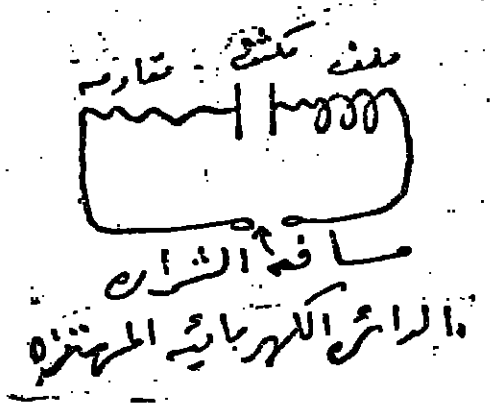 ملف مكثف مقاومه
مسافه الشراره
الدائره الكهربائيه المهتزه